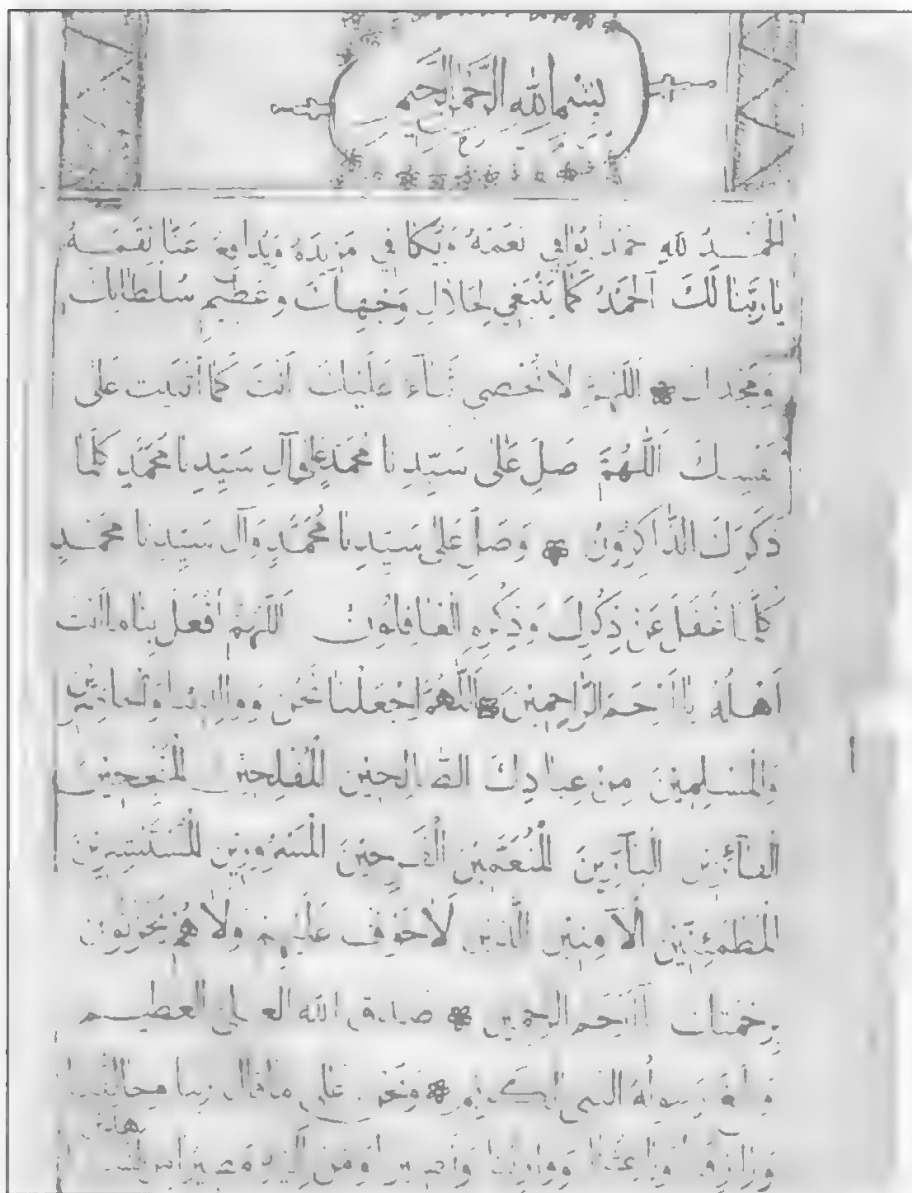 بِسْمِ اللهِ الرَّحْمٰنِ الرَّحِيمِ
اَلْحَمْدُ لِلّٰهِ حَمْدًا يُوَافِي نِعَمَهُ وَيُكَافِي مَزِيدَهُ وَيُدَافِعُ عَنَّا نِقَمَهُ
يَا رَبَّنَا لَكَ الْحَمْدُ كَمَا يَنْبَغِي لِجَلَالِ وَجْهِكَ وَعَظِيمِ سُلْطَانِكَ
وَمَجْدِكَ اَللّٰهُمَّ لَا نُحْصِي ثَنَاءً عَلَيْكَ اَنْتَ كَمَا اَثْنَيْتَ عَلَى
نَفْسِكَ اَللّٰهُمَّ صَلِّ عَلَى سَيِّدِنَا مُحَمَّدٍ وَعَلَى آلِ سَيِّدِنَا مُحَمَّدٍ كُلَّمَا
ذَكَرَكَ الذَّاكِرُونَ وَصَلِّ عَلَى سَيِّدِنَا مُحَمَّدٍ وَآلِ سَيِّدِنَا مُحَمَّدٍ
كُلَّمَا غَفَلَ عَنْ ذِكْرِكَ وَذِكْرِهِ الْغَافِلُونَ اَللّٰهُمَّ افْعَلْ بِنَا مَا اَنْتَ
اَهْلُهُ يَا اَرْحَمَ الرَّاحِمِينَ اَللّٰهُمَّ اجْعَلْنَا نَحْنُ وَوَالِدِينَا وَالْحَاضِرِينَ
وَالْمُسْلِمِينَ مِنْ عِبَادِكَ الصَّالِحِينَ الْمُفْلِحِينَ الْمُنْجِحِينَ
الْفَائِزِينَ الْبَارِّينَ الْمُنَعَّمِينَ الْفَرِحِينَ الْمَسْرُورِينَ الْمُسْتَبْشِرِينَ
الْمُطْمَئِنِّينَ الْآمِنِينَ الَّذِينَ لَا خَوْفٌ عَلَيْهِمْ وَلَا هُمْ يَحْزَنُونَ
بِرَحْمَتِكَ يَا اَرْحَمَ الرَّاحِمِينَ صَدَقَ اللهُ الْعَلِيُّ الْعَظِيمُ
وَبَلَّغَ رَسُولُهُ النَّبِيُّ الْكَرِيمُ وَنَحْنُ عَلَى مَا قَالَ رَبُّنَا